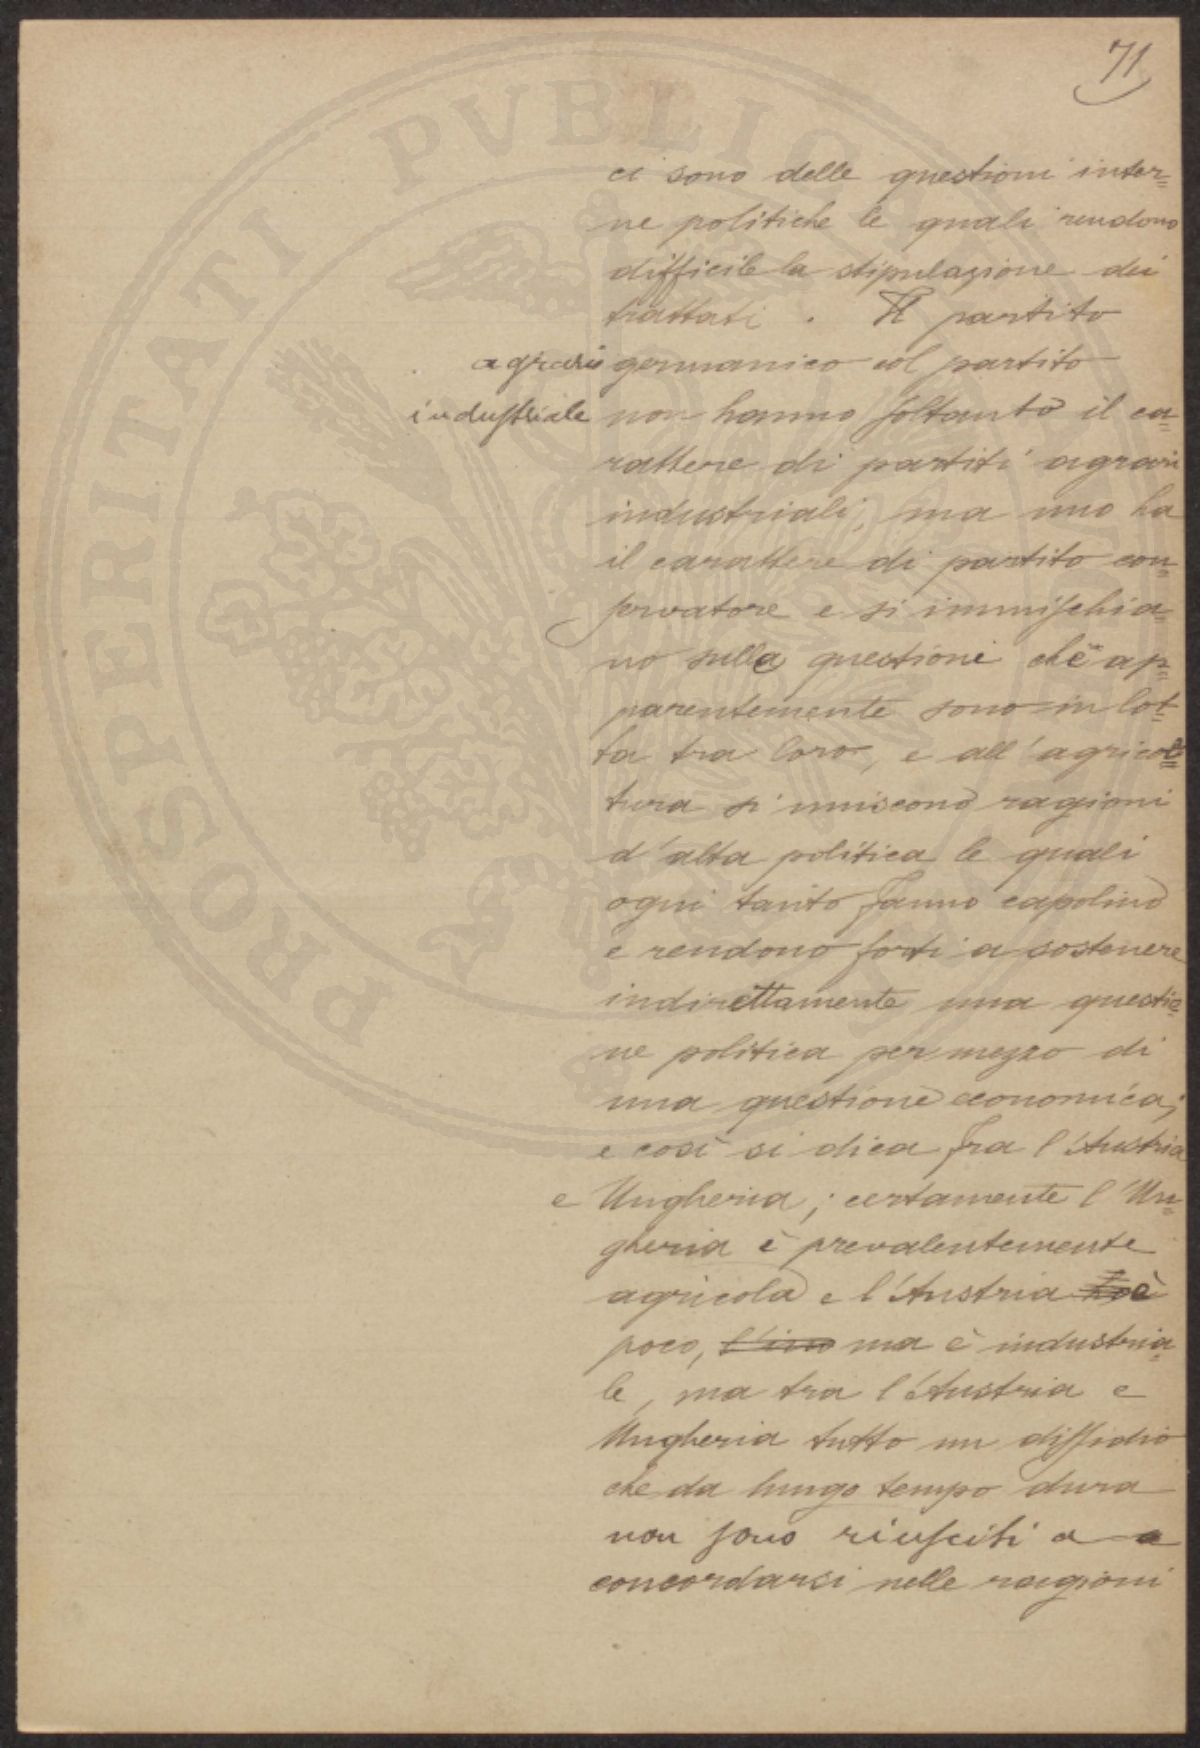 71
ci sono delle questioni inter=
ne politiche le quali rendono
difficile la stipulazione dei
trattati . Il partito
agrario germanico col partito
industriale non hanno soltanto il ca=
rattere di partiti agrari
industriali, ma uno ha
il carattere di partito con=
servatore e si immischia=
no sulla questione che ap=
parentemente sono in lot=
ta tra loro, e all'agricol=
tura si uniscono ragioni
d'alta politica le quali
ogni tanto fanno capolino
e rendono forti a sostenere
indirettamente una questio=
ne politica per mezzo di
una questione economica;
e così si dica fra l'Austria
e Ungheria; certamente l'Un=
gheria è prevalentemente
agricola e l'Austria è
poco, ma è industria=
le, ma tra l'Austria e
Ungheria tutto un dissidio
che da lungo tempo dura
non sono riusciti a a
concordarsi nelle ragioni
PROSPERITATI PVBLICAE